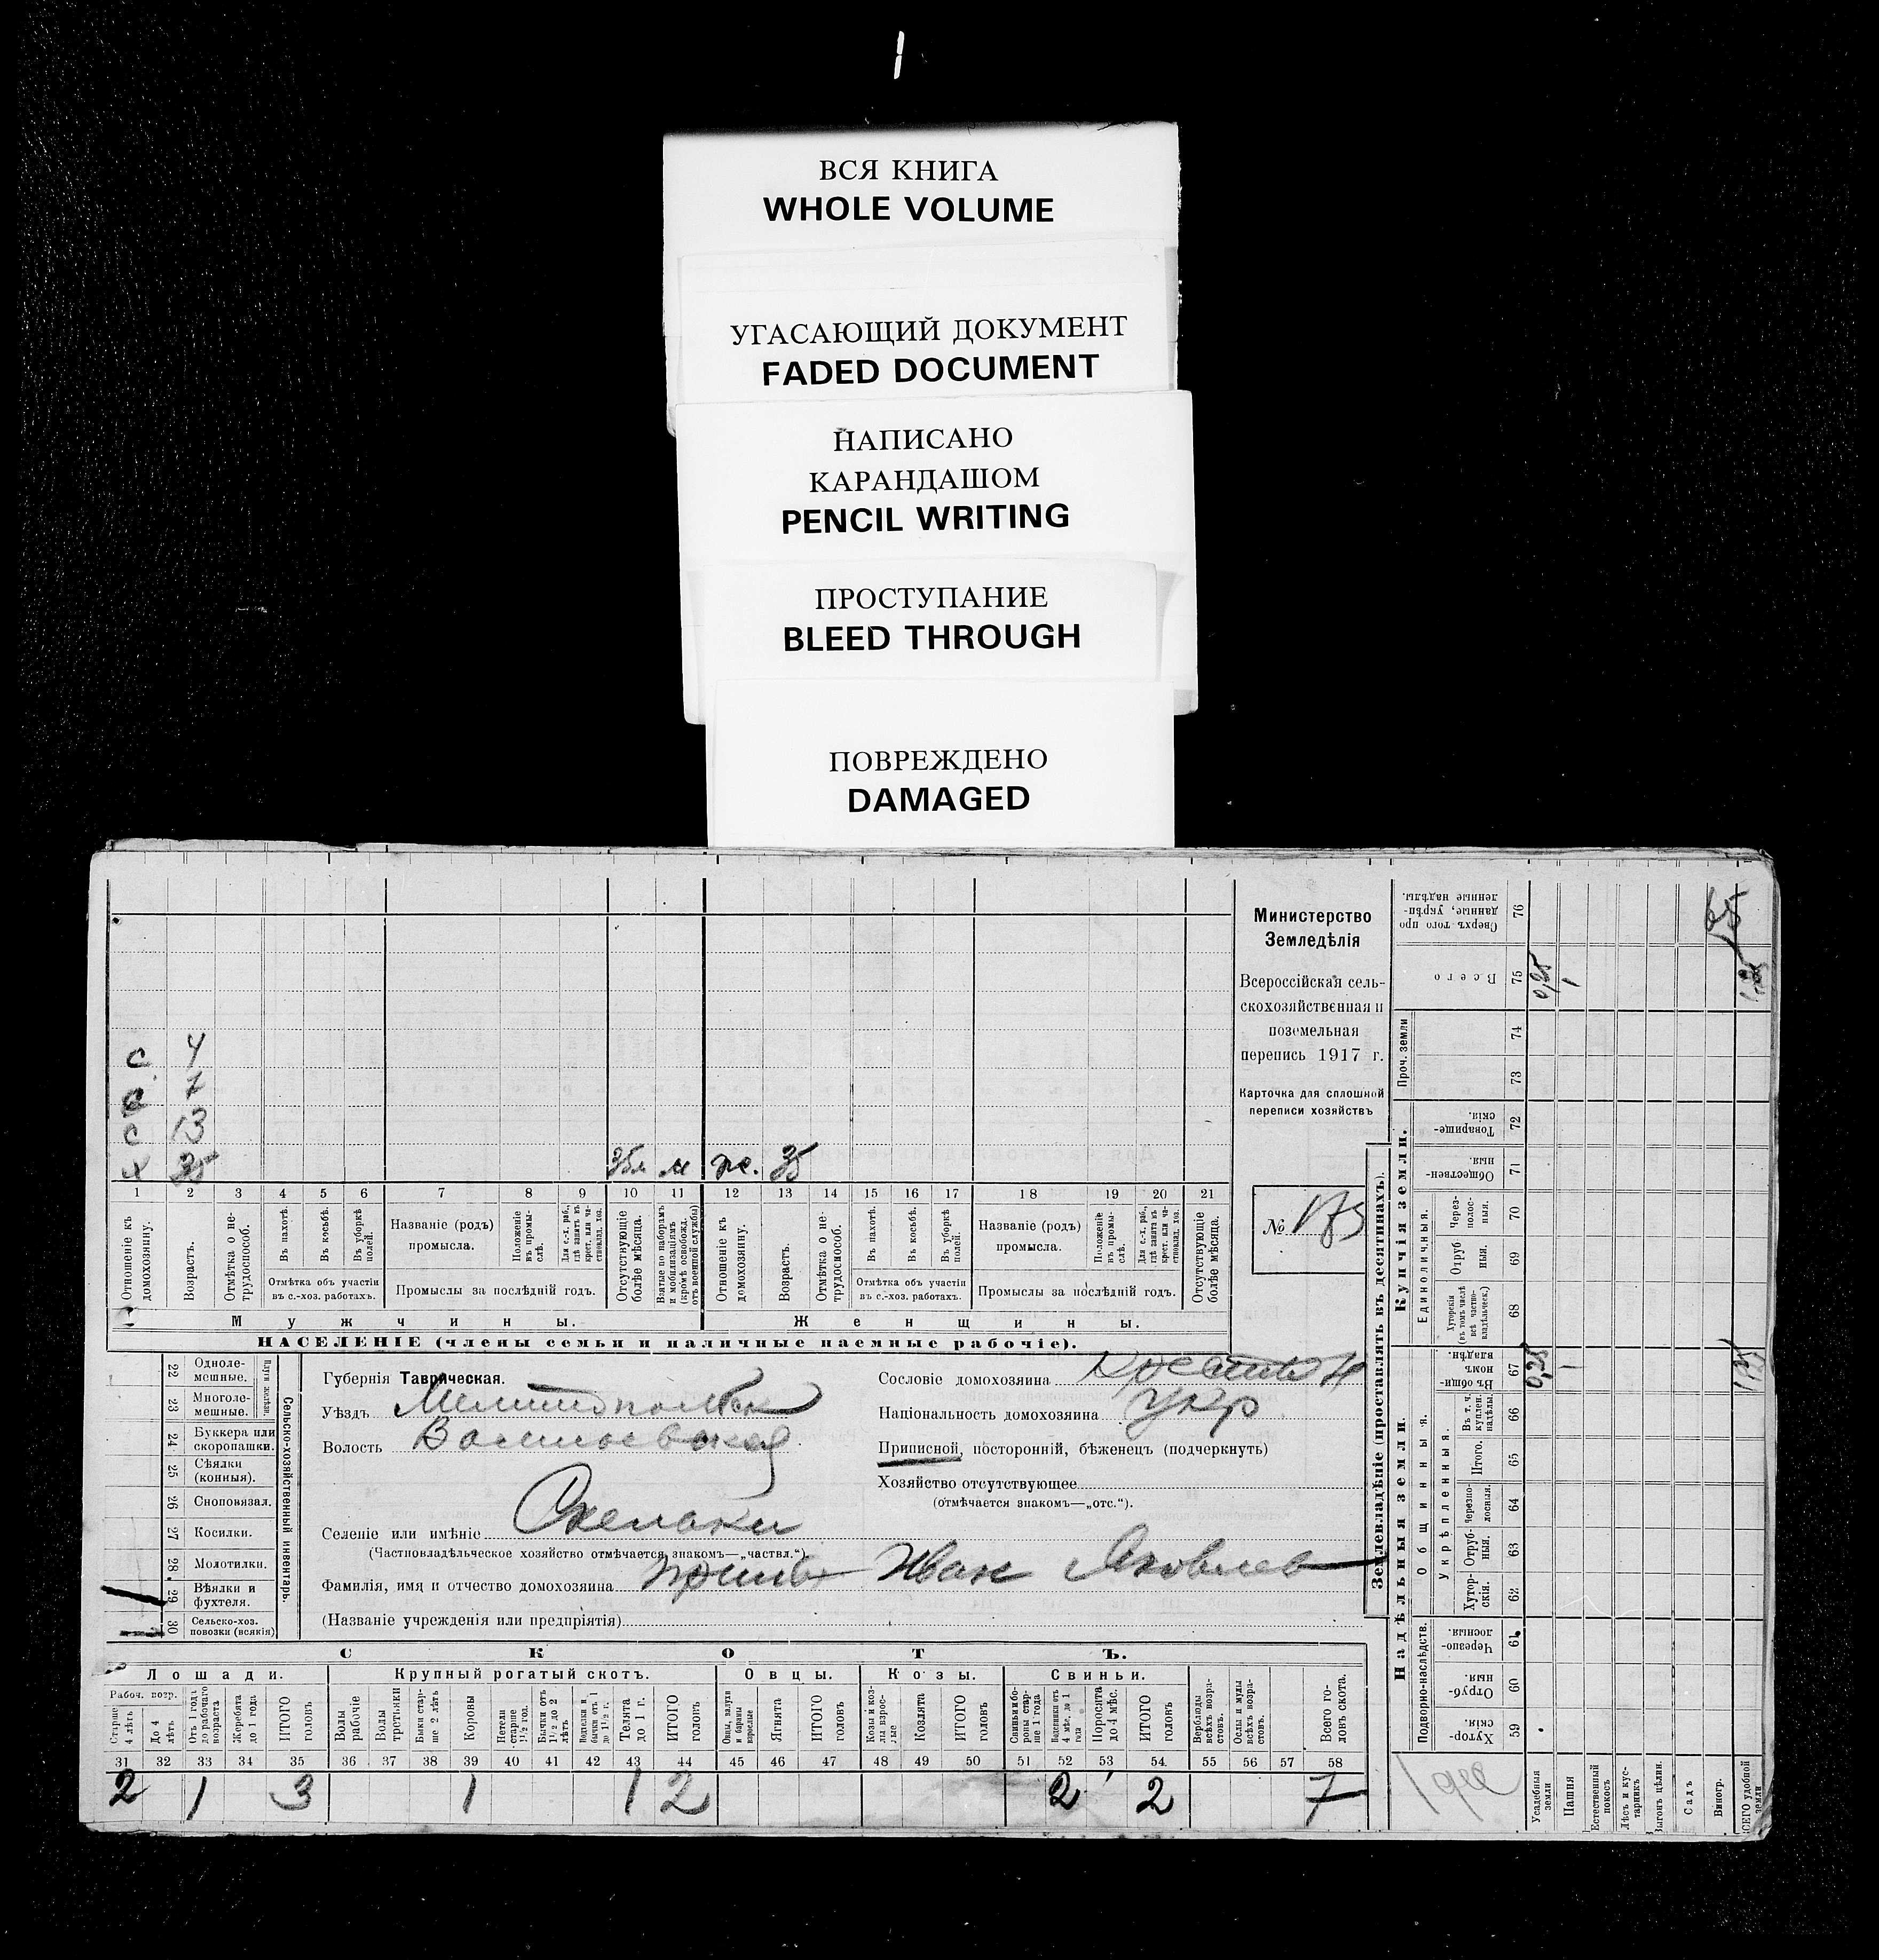 ВСЯ КНИГА
WHOLE VOLUME
УГАСАЮЩИЙ ДОКУМЕНТ
FADED DOCUMENT
НАПИСАНО
КАРАНДАШОМ
PENCIL WRITING
ПРОСТУПАНИЕ
BLEED THROUGH
ПОВРЕЖДЕНО
DAMAGED
с 4
с 7
с 13
х 35 м ж. 35
1 2 3 4 5 6 7 8 9 10 11 12 13 14 15 16 17 18 19 20 21
Отношеніе къ домохозяину.
Возрастъ.
Отмѣтка о нетрудоспособ.
Въ пахотѣ.
Въ косьбѣ.
Въ уборкѣ полей.
Отмѣтка объ участіи
въ с.-хоз. работахъ.
Названіе (родъ)
промысла.
Положеніе въ промыслѣ.
Для с.-х. раб., гдѣ занятъ въ крест. или частновлад. хоз.
Промыслы за послѣдній годъ.
Отсутствующіе болѣе мѣсяца.
Взятые по наборамъ и мобилизаціямъ (кромѣ освобожд. отъ военной службы)
Отношеніе къ домохозяину.
Возрастъ.
Отмѣтка о нетрудоспособ.
Въ пахотѣ.
Въ косьбѣ.
Въ уборкѣ полей.
Отмѣтка объ участіи
въ с.-хоз. работахъ.
Названіе (родъ)
промысла.
Положеніе въ промыслѣ.
Для с.-х. раб., гдѣ занята въ крест. или частновлад. хоз.
Промыслы за послѣдній годъ.
Отсутствующіе болѣе мѣсяца.
Мужчины.
Женщины.
НАСЕЛЕНІЕ (члены семьи и наличные наемные рабочіе).
Министерство
Земледѣлія
Всероссійская сель-
скохозяйственная и
поземельная
перепись 1917 г.
Карточка для сплошной
переписи хозяйствъ
№ 175
22 Одноле-
мешные.
23 Многоле-
мешные.
24 Буккера или
скоропашки.
25 Сѣялки
(конныя).
26 Сноповязал.
27 Косилки.
28 Молотилки.
29 Вѣялки и
фухтеля.
30 Сельско-хоз.
повозки (всякія)
Сельско-хозяйственный инвентарь.
Губернія Таврическая.
Уѣздъ Мелитопольск
Волость
Селеніе или имѣніе
(Частновладѣльческое хозяйство отмѣчается знакомъ—„частвл.“)
Фамилія, имя и отчество домохозяина Иван Яковлев
(Названіе учрежденія или предпріятія)
Сословіе домохозяина
Національность домохозяина укр
Приписной, посторонній, бѣженецъ (подчеркнуть)
Хозяйство отсутствующее
(отмѣчается знакомъ—„отс.“).
СКОТЪ.
Лошади.
Крупный рогатый скотъ.
Овцы.
Козы.
Свиньи.
Рабоч. возр.
Старше 4 лѣтъ
До 4 лѣтъ
Отъ 1 года до рабочаго возраста
Жеребята до 1 года
ИТОГО головъ
Волы рабочіе
Волы третьяки
Быки старше 2 лѣтъ
Коровы
Нетели старше 1½ год.
Бычки отъ 1½ до 2 лѣтъ
Телята до 1 г.
ИТОГО головъ
Овцы, валухи и бараны взрослые
Ягнята
ИТОГО головъ
Козы и козлы взрослые
Козлята
ИТОГО головъ
Свиньи и боровы старше 1 года
Поросята до 4 мѣс.
ИТОГО головъ
Верблюды всѣхъ возрастовъ.
Ослы и мулы всѣхъ возрастовъ.
Всего головъ скота.
31 32 33 34 35 36 37 38 39 40 41 42 43 44 45 46 47 48 49 50 51 52 53 54 55 56 57 58
2 1 3 1 1 2 2 2 7
Землевладѣніе (проставлять въ десятинахъ).
Надѣльныя земли.
Купчія земли.
Проч. земли
Подворно-наслѣдств.
Общинныя.
Укрѣпленныя.
Единоличныя.
Сверхъ того проданные, укрѣпленные надѣлы. 76
Всего 75 0,25 1
74
73
Товарищескія. 72
Общественныя. 71
Черезполосныя. 70
Отрубныя. 69
Хуторскія (въ томъ числѣ всѣ частновладѣльческ.) 68
Въ общинномъ владѣн. 67 0,25 1 1,25
Въ т. ч. куплен. надѣлы. 66
Итого. 65
Черезполосныя. 64
Отрубныя. 63
Хуторскія. 62
Черезполосныя. 61
Отрубныя. 60
Хуторскія. 59
Усадебныя земли
Пашня
Естественный покосъ
Лѣсъ и кустарникъ
Выгонъ цѣлин.
Садъ
Виногр.
ВСЕГО удобной земли